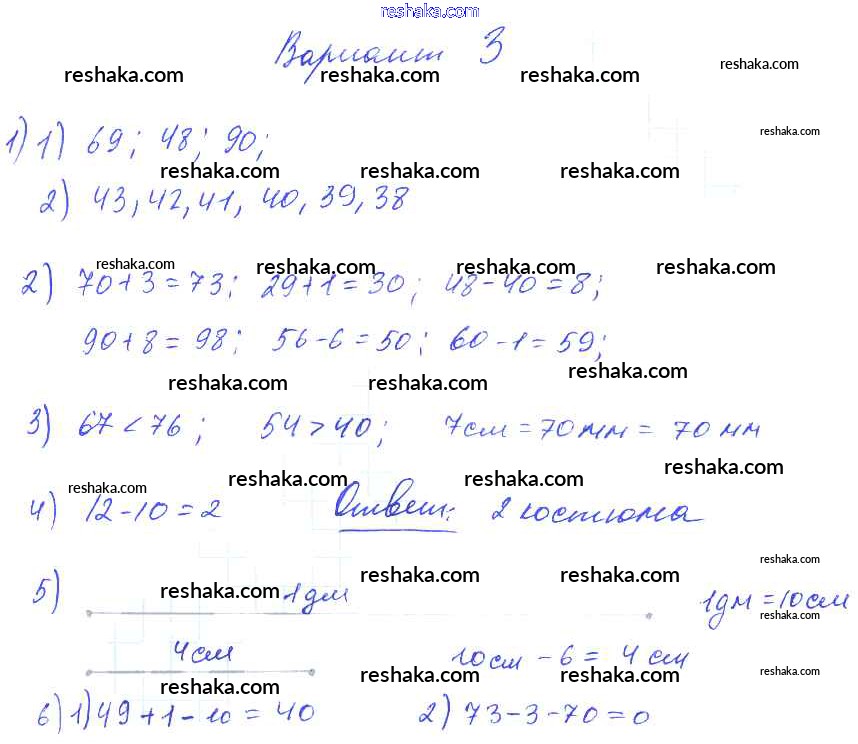 reshaka.com
Вариант 3
reshaka.com reshaka.com reshaka.com reshaka.com
reshaka.com
1) 1) 69; 48; 90;
reshaka.com reshaka.com reshaka.com
2) 43, 42, 41, 40, 39, 38
reshaka.com reshaka.com reshaka.com reshaka.com
2) 70+3=73; 29+1=30; 48-40=8;
90+8=98; 56-6=50; 60-1=59;
reshaka.com reshaka.com reshaka.com
3) 67<76; 54>40; 7см=70мм=70мм
reshaka.com reshaka.com reshaka.com reshaka.com
4) 12-10=2 Ответ: 2 костюма
reshaka.com
reshaka.com reshaka.com reshaka.com
5) 1дм 1дм=10см
reshaka.com
4см 10см-6=4см
reshaka.com reshaka.com reshaka.com reshaka.com
6) 1) 49+1-10=40 2) 73-3-70=0